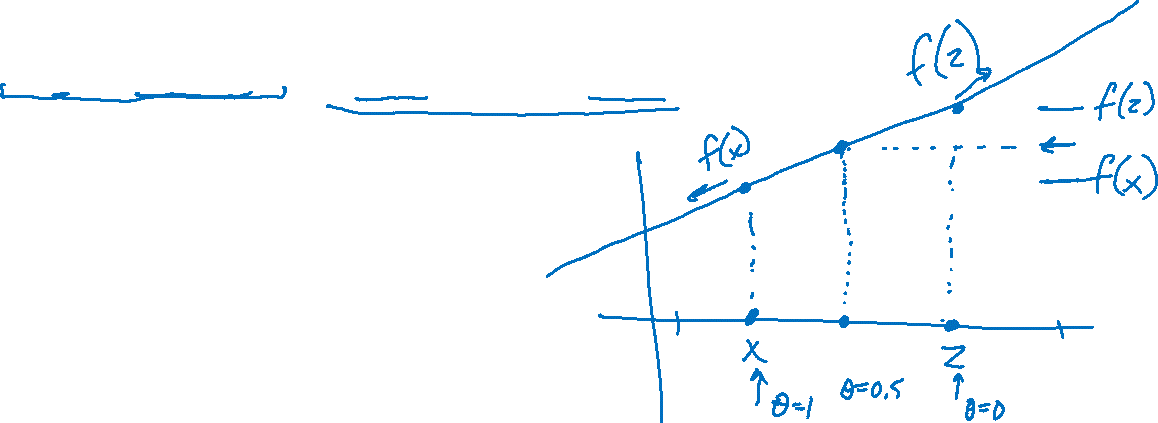 f(z)
f(z)
f(x)
f(x)
x
z
θ=1
θ=0.5
θ=0